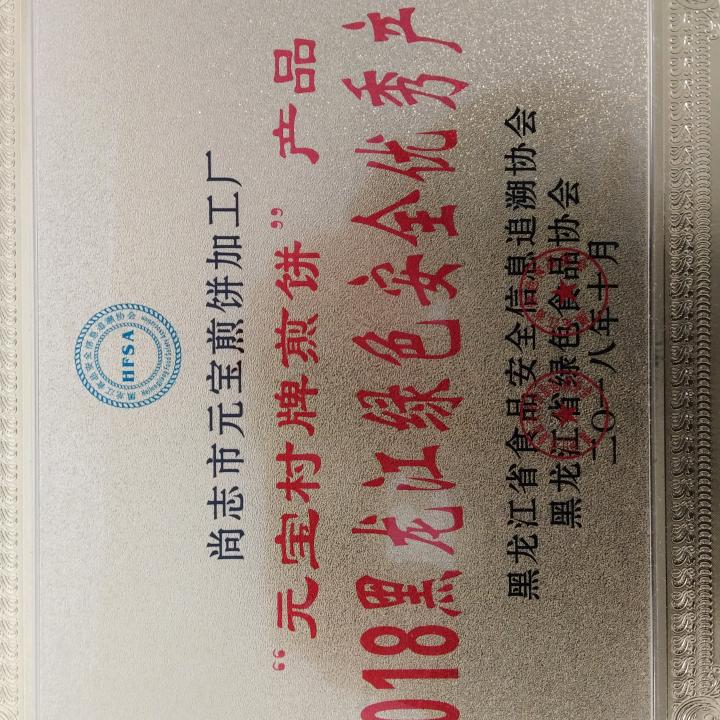 HFSA
尚志市元宝煎饼加工厂
“元宝村牌煎饼”产品
018黑龙江绿色安全优秀产
黑龙江省食品安全信息追溯协会
黑龙江省绿色食品协会
二〇一八年十月